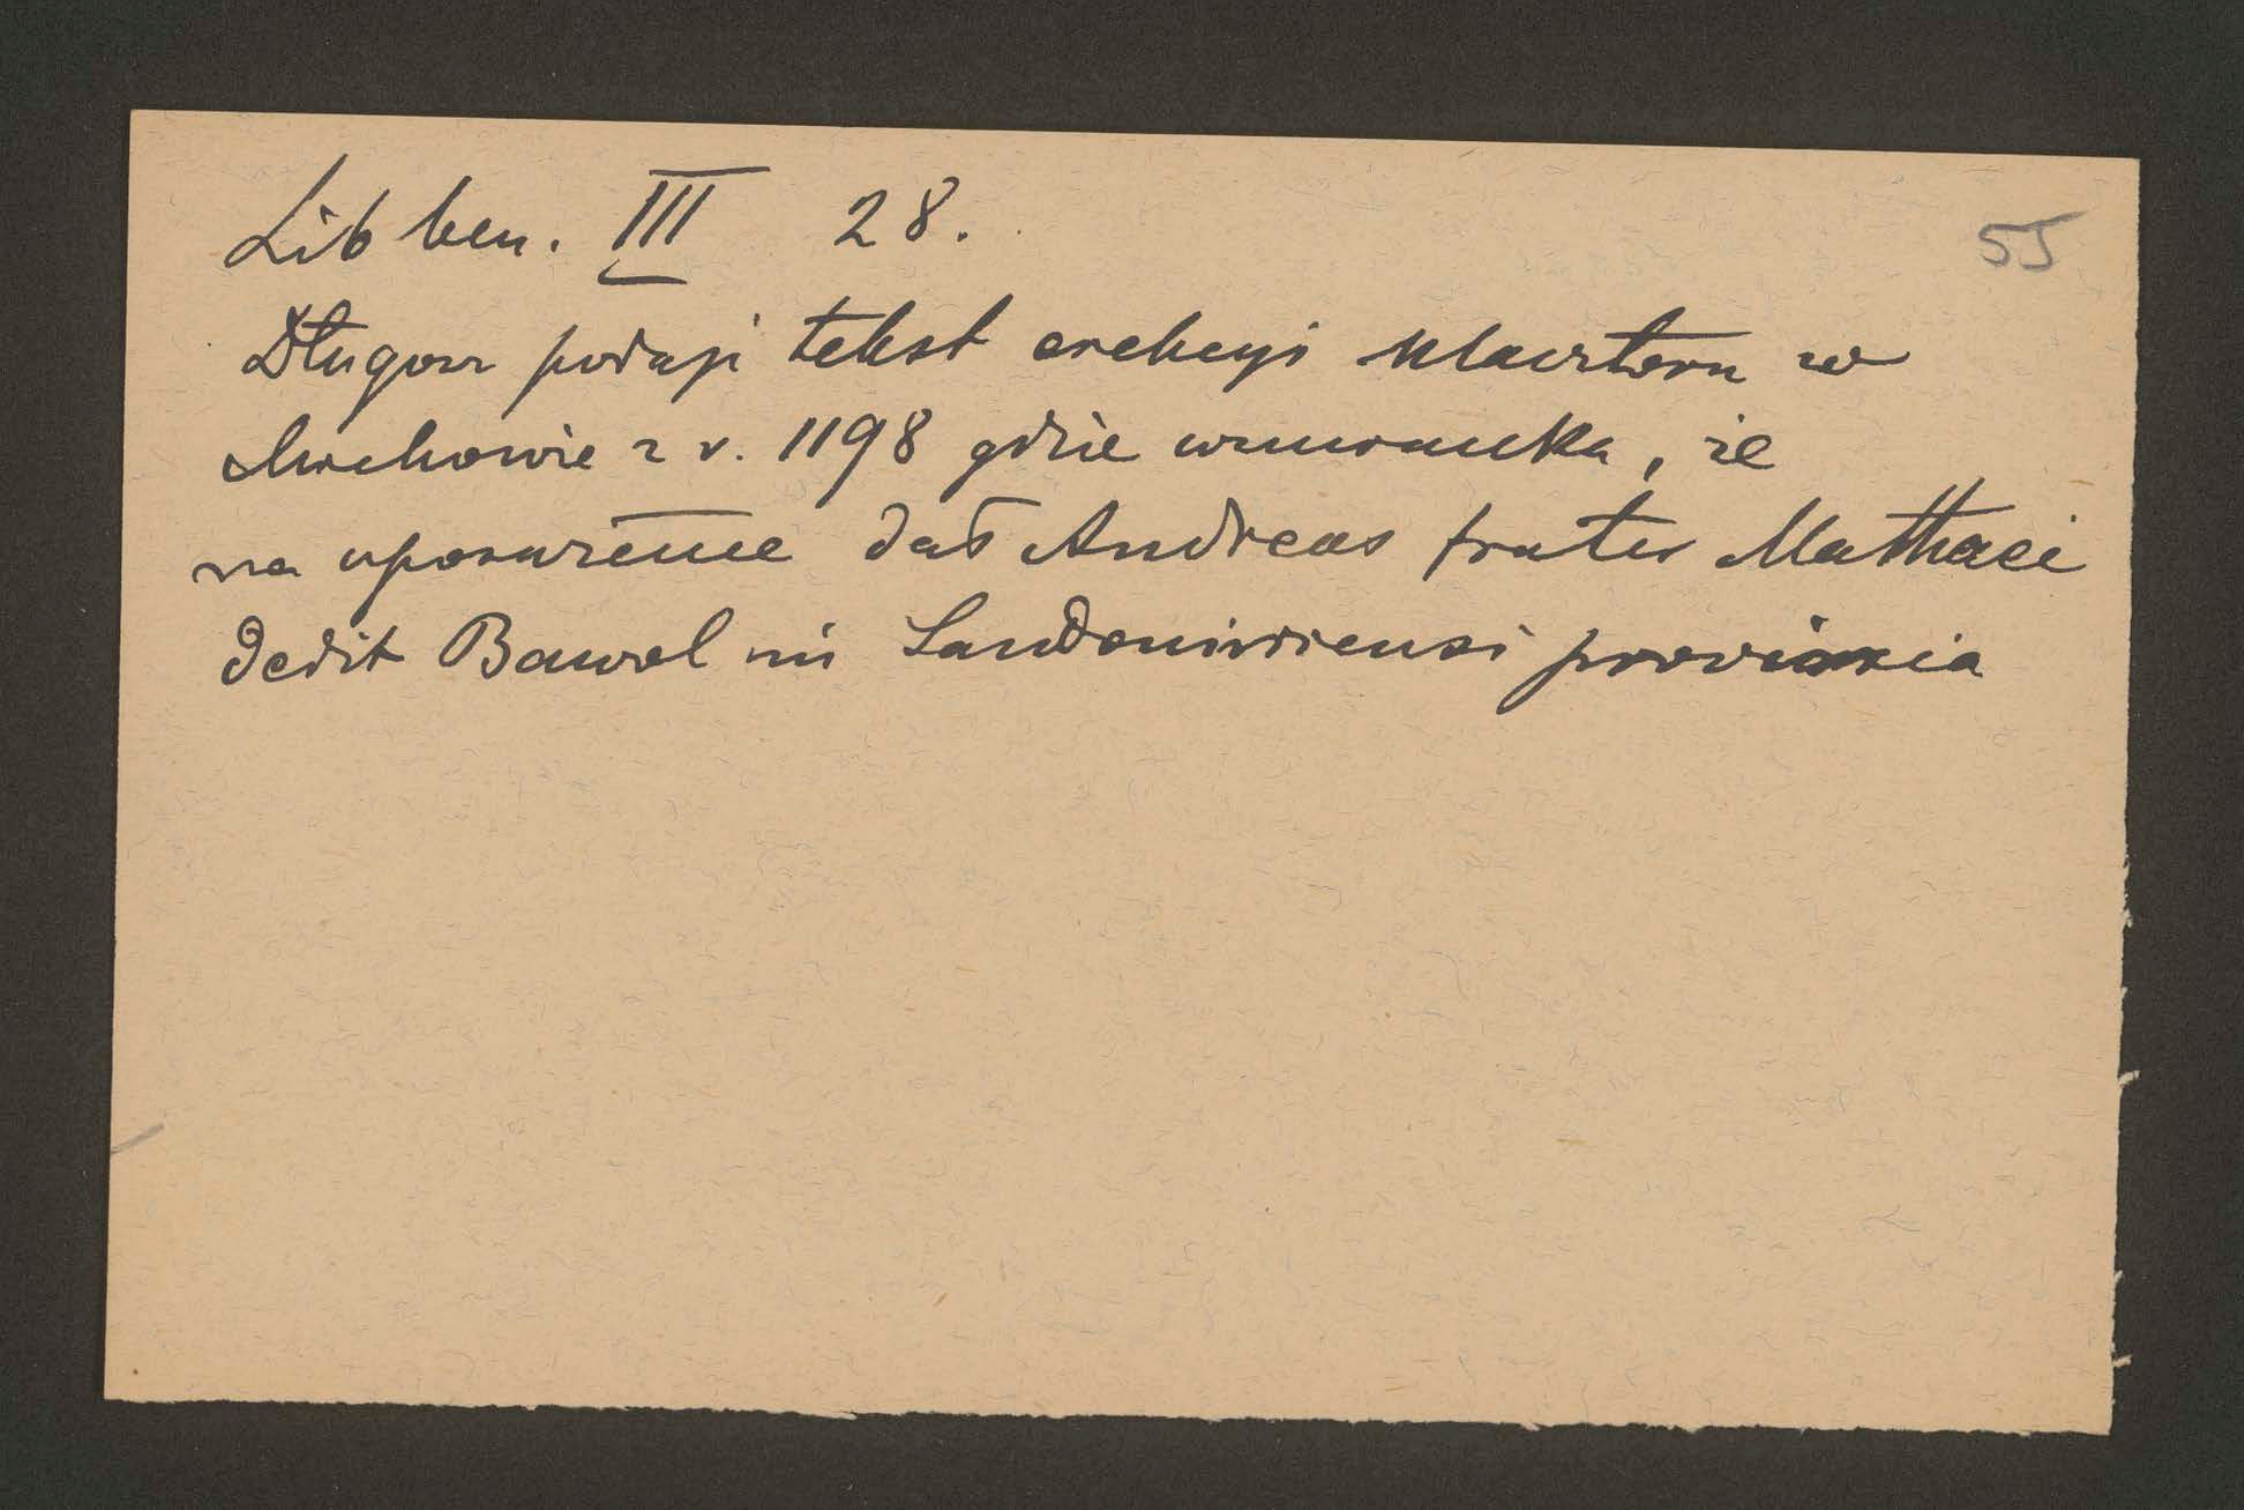 Lib ben. III 28.
55
Długosz podaje tekst erekcyi klasztoru w
Miechowie z r. 1198 gdzie wzmianka, że
na uposażenie dał Andreas frater Mathaei
dedit Bawol in Sandomiriensi provincia